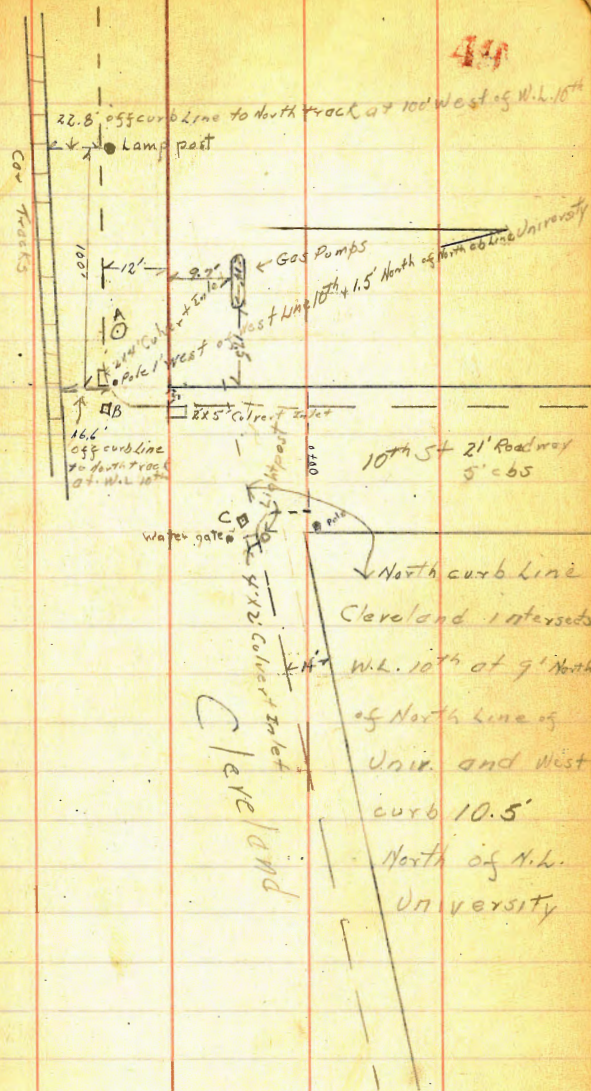 44
22.8' off curb Line to North track at 100' West of W.L. 10th
Lamp post
Car Tracks
100'
12'
9.7'
Gas Pumps
University
A
2x4' Culvert Inlet
Pole 1' West of West Line 10th & 1.5' North of North cb Line
B
2x5' Culvert Inlet
16.6'
off curb line
to North track
at W.L. 10th
10th St 21' Roadway
5' cbs
0+00
Lightpost
C
Pole
Water gate
4'x2' Culvert Inlet
14'
Cleveland
North curb Line
Cleveland intersects
W.L. 10th at 9' North
of North Line of
Univ. and West
curb 10.5'
North of N.L.
University